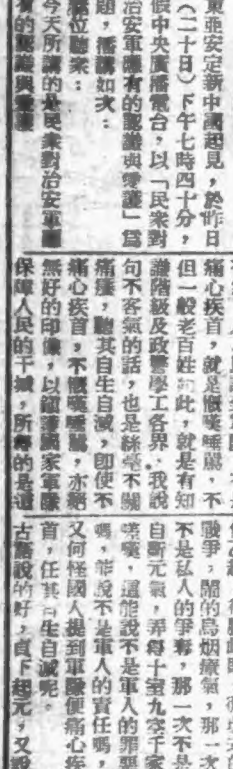 東亞安定新中國起見，於昨日
（二十日）下午七時四十分，
假中央廣播電台，以「民衆對
治安軍應有的認識與愛護」爲
題，播講如次：
諸位聽衆：
今天所講的是民衆對治安軍應
有的認識與愛護
痛心疾首，就是慨嘆唾罵，不
但一般老百姓如此，就是有知
識階級及政警學工各界，我說
句不客氣的話，也是絲毫不關
痛癢，聽其自生自滅，即使不
痛心疾首，不慨嘆唾罵，亦絕
無好的印像，以鎮護國家軍隊
保障人民的干城，所得的是這
戰爭，鬧的烏烟瘴氣，那一次
不是私人的爭奪，那一次不是
自斷元氣，弄得十室九空千家
嘆，這能說不是軍人的罪惡
嗎，能說不是軍人的責任嗎，
又何怪國人提到軍隊便痛心疾
首，任其自生自滅呢。
古語說的好，貞下起元，又說